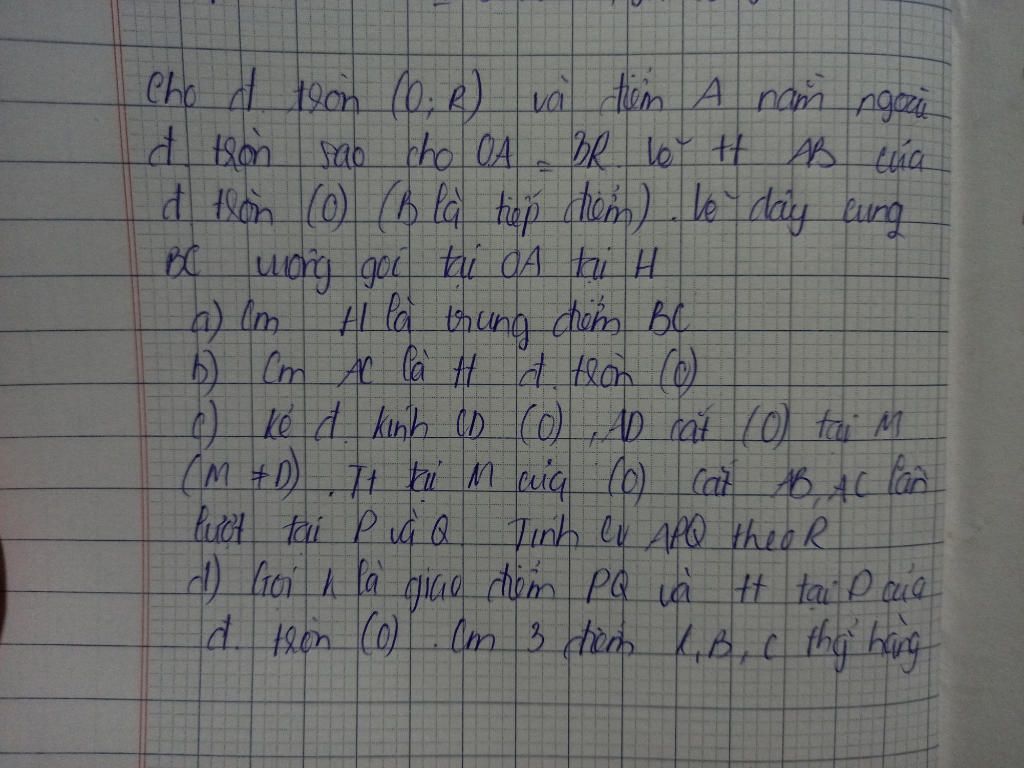 Cho đ. tròn (O; R) và điểm A nằm ngoài
đ tròn sao cho OA = 3R. Vẽ tt AB của
đ tròn (O) (B là tiếp điểm). Vẽ dây cung
BC vuông góc tại OA tại H
a) Cm H là trung điểm BC
b) Cm AC là tt đ. tròn (O)
c) Kẻ đ. kính CD (O), AD cắt (O) tại M
(M ≠ D). Tt tại M của (O) cắt AB, AC lần
lượt tại P và Q Tính CV APQ theo R
d) Gọi K là giao điểm PQ và tt tại D của
đ. tròn (O). Cm 3 điểm K, B, C thg hàng